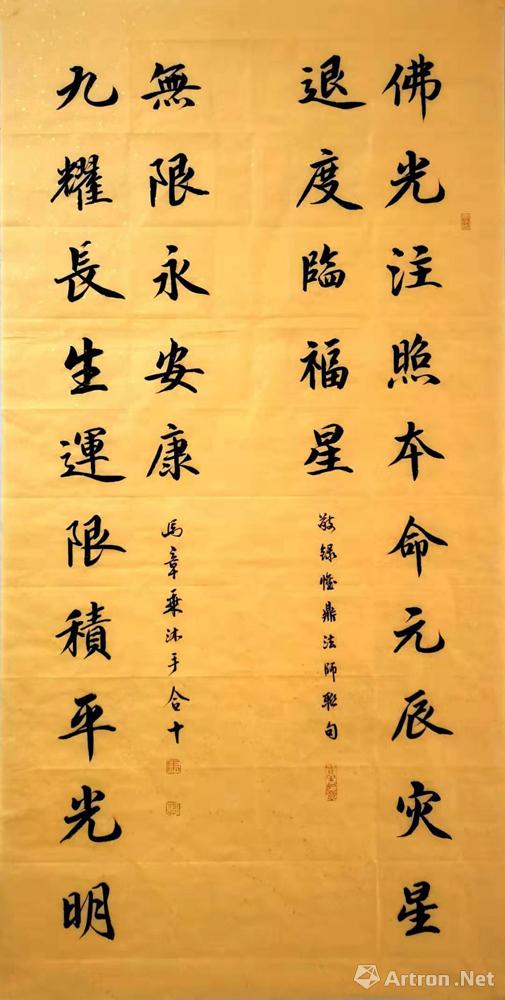 佛光注照本命元辰灾星
退度臨福星
敬録惟鼎法師聯句
九耀長生運限積平光明
無限永安康
馬章乘沐手合十
Artron.Net